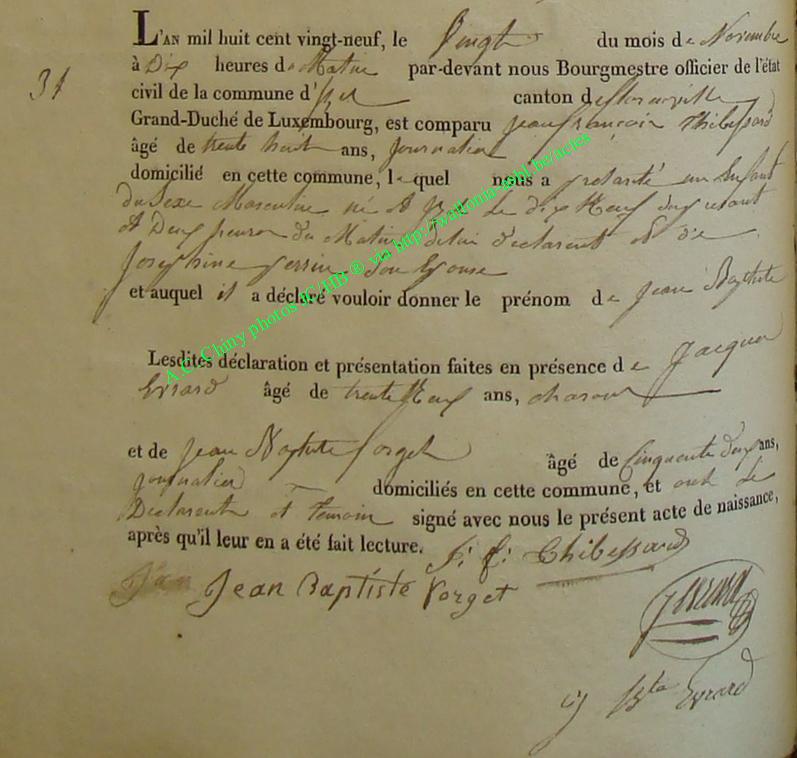 L'AN mil huit cent vingt-neuf, le Vingt du mois de Novembre
31
à Dix heures du Matin par-devant nous Bourgmestre officier de l'état
civil de la commune d'Izel canton de florenville
Grand-Duché de Luxembourg, est comparu jean françois thibessard
âgé de trente huit ans, journalier
domicilié en cette commune, lequel nous a presanté un Enfant
du Sexe Masculin né A Izel le dix Neuf du
A Deux heures du Matin de lui declarent et de
Josephine son Epouse
et auquel il a déclaré vouloir donner le prénom de jean Baptiste
Lesdites déclaration et présentation faites en présence de Jacque
Evrard âgé de trente Neuf ans,
et de jean Baptiste forget âgé de Cinquante deux ans,
journalier domiciliés en cette commune, et ont le
Declarent et temoin signé avec nous le présent acte de naissance,
après qu'il leur en a été fait lecture. J: f: Thibessard
Jean Jean Baptiste Forget
Evrard
A.C. Chiny photos JC/HB ® via http://wallonia-asbl.be/actes